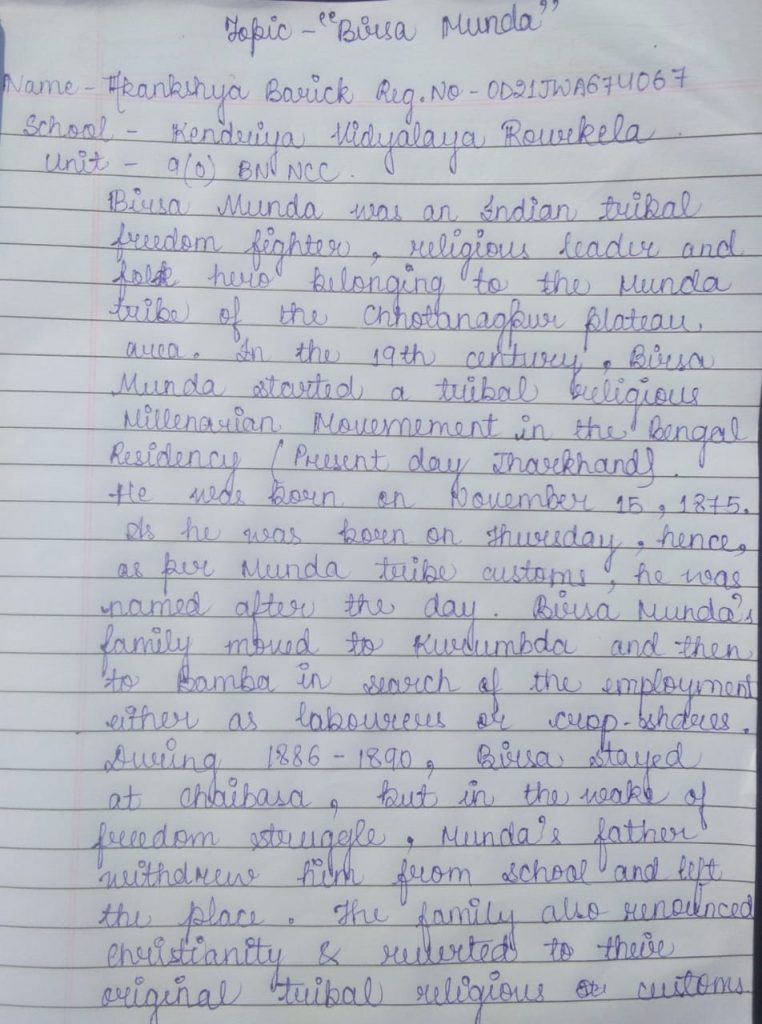 Topic - "Birsa Munda"
Name - Akankshya Barick Reg. No - OD21JWA674067
School - Kendriya Vidyalaya Rourkela.
Unit - 9(O) BN NCC.
Birsa Munda was an Indian tribal
freedom fighter, religious leader and
folk hero belonging to the Munda
tribe of the Chhotanagpur plateau
area. In the 19th century, Birsa
Munda started a tribal religious
Millenarian Movemement in the Bengal
Residency (Present day Jharkhand).
He was born on November 15, 1875.
As he was born on Thursday, hence,
as per Munda tribe customs, he was
named after the day. Birsa Munda's
family moved to Kurumbda and then
to Bamba in search of the employment
either as labourers or crop-shares.
During 1886-1890, Birsa stayed
at Chaibasa, but in the wake of
freedom struggle, Munda's father
withdrew him from school and left
the place. The family also renounced
Christianity & reverted to their
original tribal religious customs